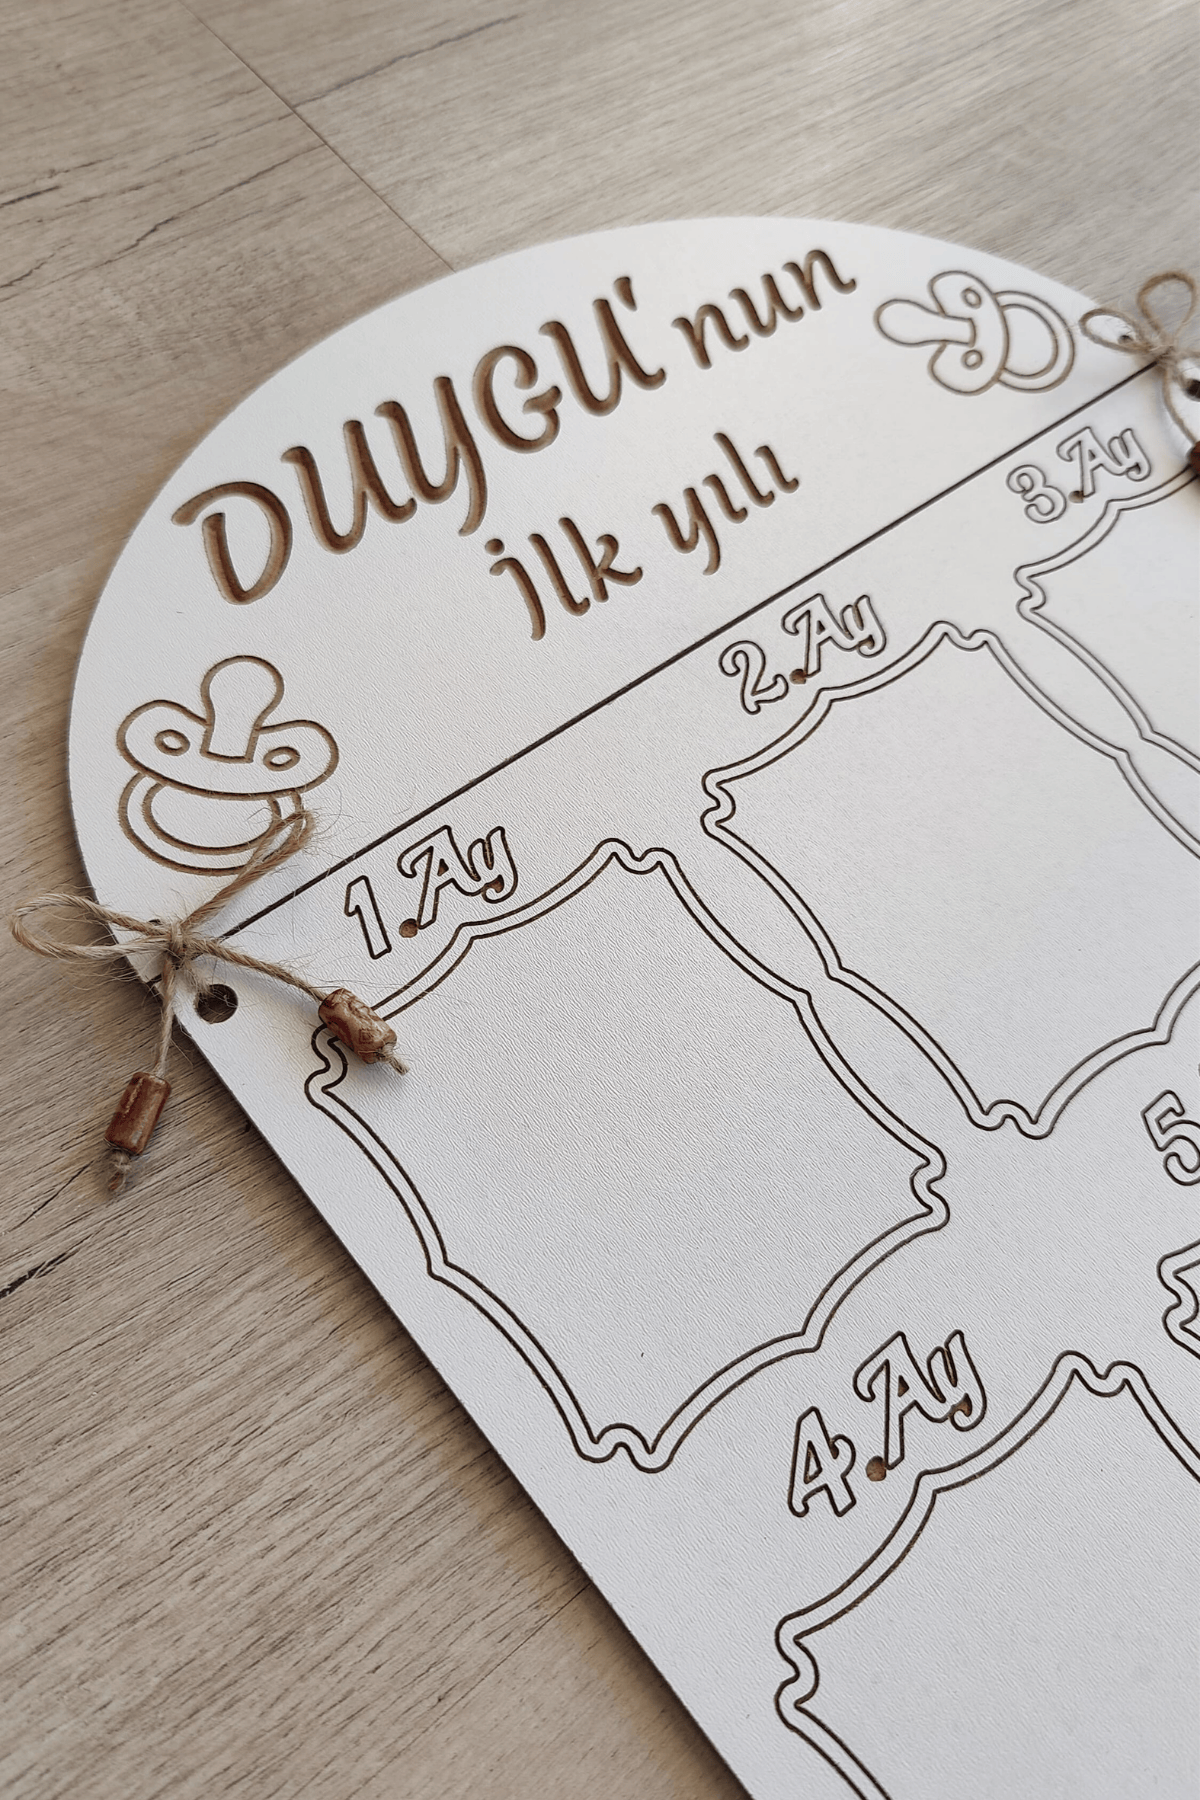 DUYGU'nun
ilk yılı
1.Ay
2.Ay
3.Ay
4.Ay
5